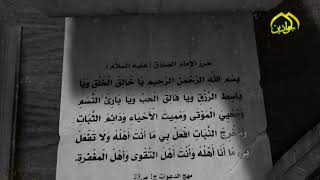 الجوادين
حرز الإمام الصادق (عليه السلام)
بِسْمِ اللهِ الرَّحْمَنِ الرَّحِيمِ يَا خَالِقَ الْخَلْقِ وَيَا
بَاسِطَ الرِّزْقِ وَيَا فَالِقَ الْحَبِّ وَيَا بَارِئَ النَّسَمِ
وَمُحْيِيَ الْمَوْتَى وَمُمِيتَ الْأَحْيَاءِ وَدَائِمَ الثَّبَاتِ
وَمُخْرِجَ النَّبَاتِ افْعَلْ بِي مَا أَنْتَ أَهْلُهُ وَلَا تَفْعَلْ
بِي مَا أَنَا أَهْلُهُ وَأَنْتَ أَهْلُ التَّقْوَى وَأَهْلُ الْمَغْفِرَةِ.
مهج الدعوات ج1 ص23